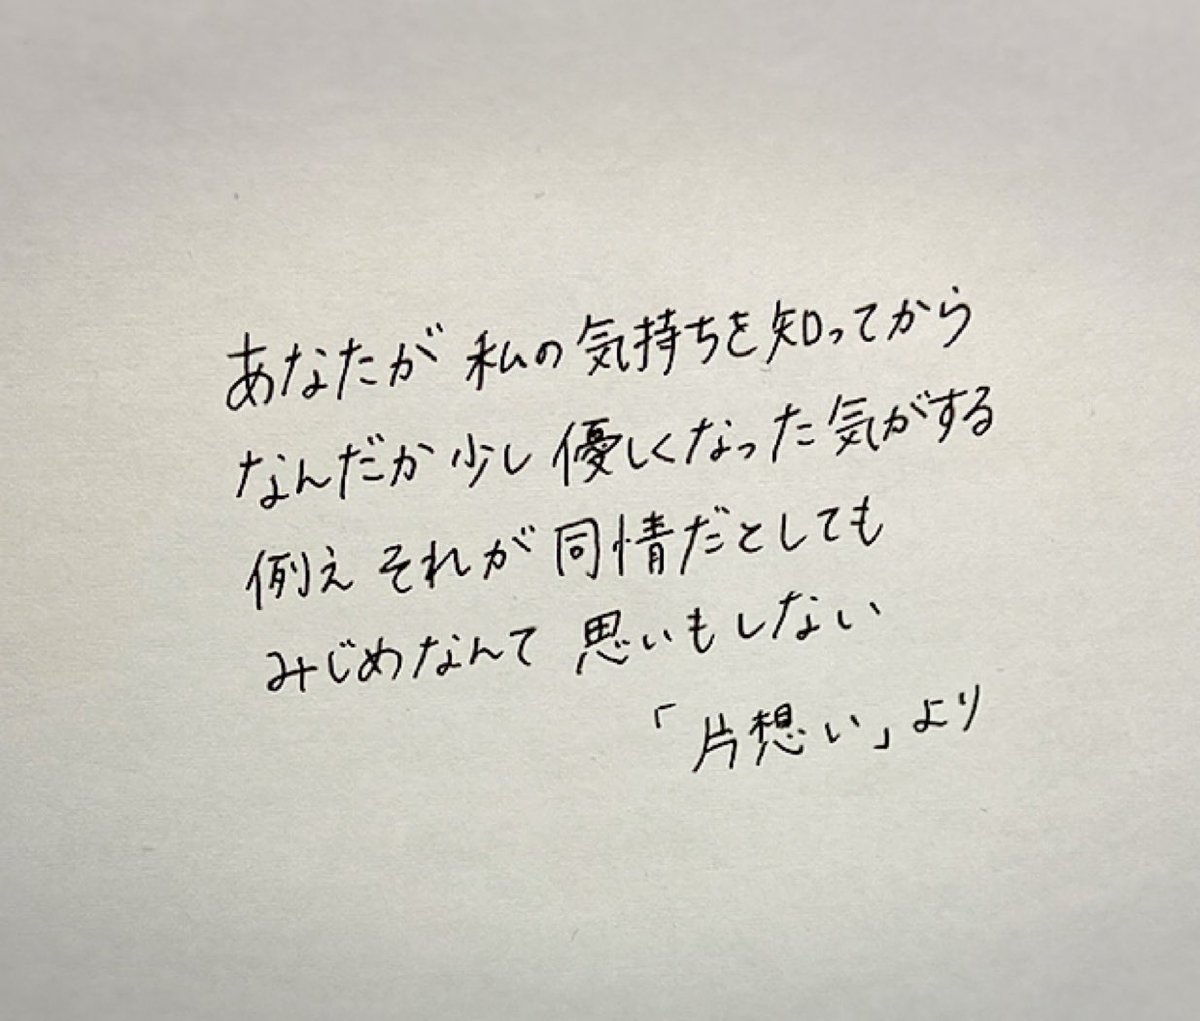 あなたが 私の気持ちを知ってから
なんだか 少し 優しくなった気がする
例え それが 同情だとしても
みじめなんて 思いもしない
「片想い」より